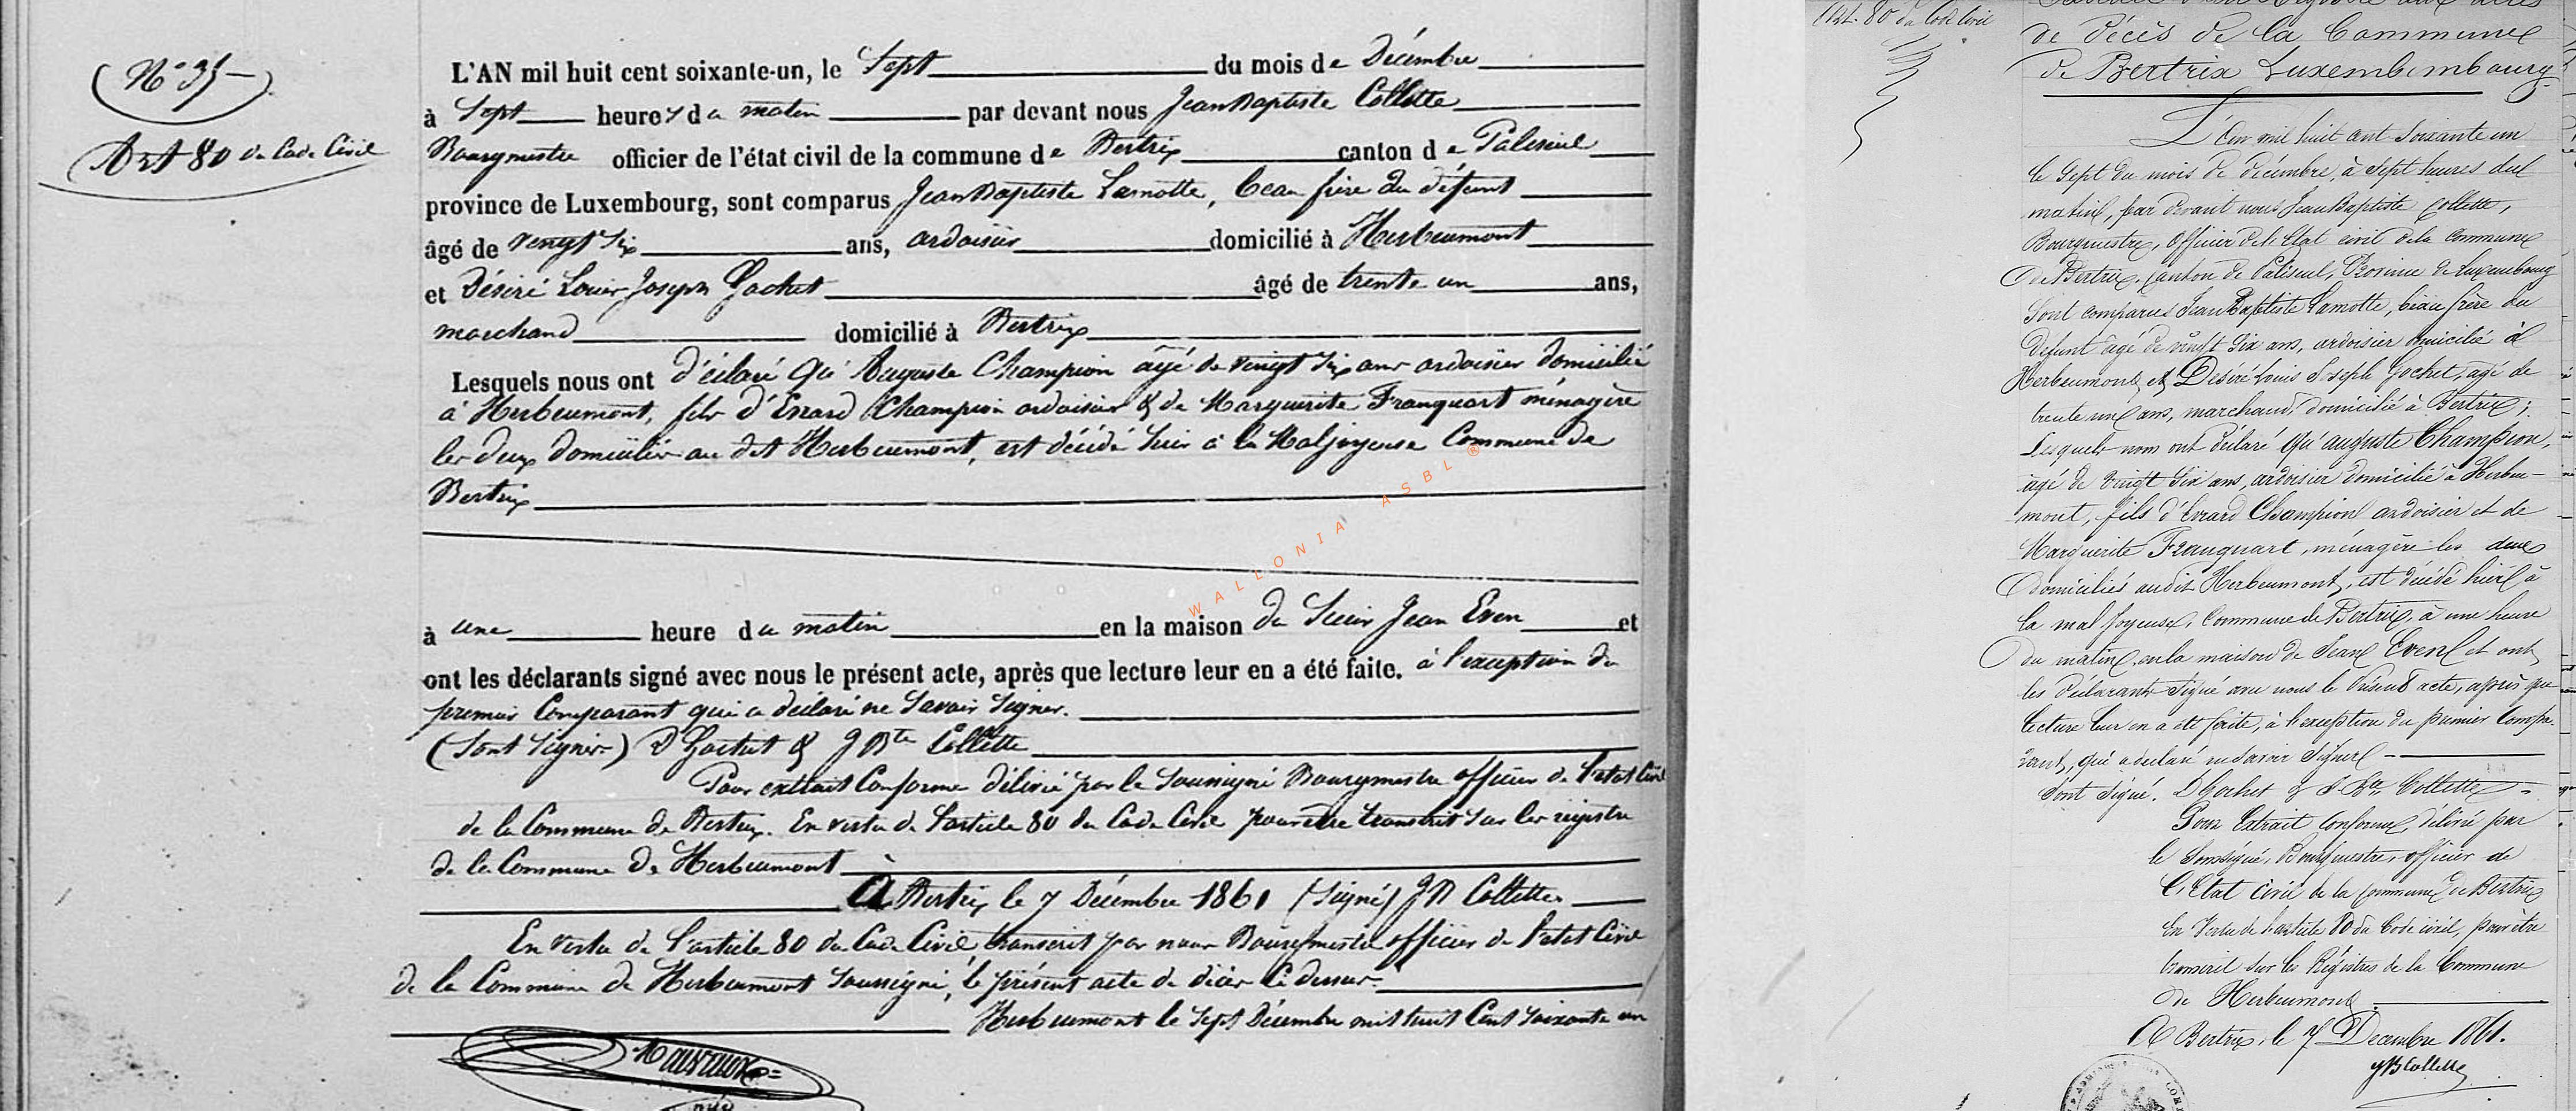 N° 35
Art 80 du Code Civil
L'AN mil huit cent soixante-un, le Sept du mois de Décembre
à Sept heures du matin par devant nous Jean Baptiste Collette
Bourgmestre officier de l'état civil de la commune de Bertrix canton de Paliseul
province de Luxembourg, sont comparus Jean Baptiste Lamotte, beau frère du défunt
âgé de vingt six ans, ardoisier domicilié à Herbeumont
et Désiré Louis Joseph Gochet âgé de trente un ans,
marchand domicilié à Bertrix
Lesquels nous ont déclaré qu'Auguste Champion âgé de vingt six ans ardoisier domicilié
à Herbeumont, fils d'Evrard Champion ardoisier & de Marguerite Franquart ménagère
les deux domiciliés au dit Herbeumont, est décédé hier à la Maljoyeuse Commune de
Bertrix
à une heure du matin en la maison du Sieur Jean Even et
ont les déclarants signé avec nous le présent acte, après que lecture leur en a été faite. à l'exception du
premier Comparant qui a déclaré ne savoir signer.
(sont signés) D Gochet & J Bte Collette
Pour extrait Conforme délivré par le soussigné Bourgmestre officier de l'etat Civil
de la Commune de Bertrix. En vertu de l'article 80 du Code Civil pour être transcrit sur les registres
de la Commune de Herbeumont
A Bertrix le 7 Décembre 1861 (signé) J B Collette
En vertu de l'article 80 du Code Civil transcrit par nous Bourgmestre officier de l'etat Civil
de la Commune de Herbeumont soussigné, le présent acte de décès ci dessus
Herbeumont le sept Décembre mil huit Cent soixante un
WALLONIA ASBL ®
Art. 80 du Code Civil
de décès de la Commune
de Bertrix Luxembembourg
L'an mil huit cent soixante un
le sept du mois de décembre, à sept heures du
matin, par devant nous Jean Baptiste Collette,
Bourgmestre, officier de l'Etat civil de la commune
de Bertrix, canton de Paliseul, Province de Luxembourg
sont comparus Jean Baptiste Lamotte, beau frère du
défunt âgé de vingt six ans, ardoisier domicilié à
Herbeumont, et Désiré Louis Joseph Gochet, agé de
trente un ans, marchand, domicilié à Bertrix;
Lesquels nous ont déclaré qu'auguste Champion,
âgé de vingt six ans, ardoisier domicilié à Herbeu-
mont, fils d'Evrard Champion ardoisier et de
Marguerite Franquart, ménagère les deux
domiciliés audit Herbeumont, est décédé hier à
la mal joyeuse, Commune de Bertrix, à une heure
du matin, en la maison de Jean Even et ont
les déclarants signé avec nous le présent acte, après que
lecture leur en a été faite, à l'exception du premier Compa-
rant, qui a déclaré ne savoir signer
sont signé. D Gochet & J. Bte Collette
Pour Extrait Conforme, délivré par
le Soussigné, Bourgmestre, officier de
l'Etat civil de la commune de Bertrix
en vertu de l'article 80 du Code civil, pour être
transcrit sur les Régistres de la Commune
de Herbeumont
A Bertrix, le 7 Décembre 1861.
JB Collette